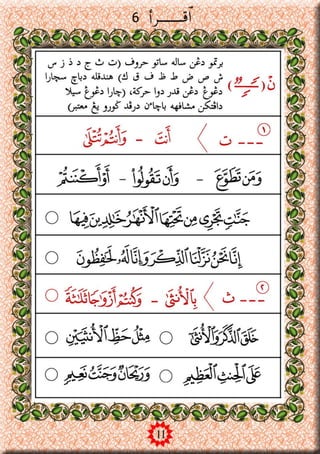 ٱقــرأ 6
برتمو دڠن ساله ساتو حروف (ت ث ج د ذ ز س
ش ص ض ط ظ ف ق ك) هندقله دباچ سچارا
دڠوڠ دڠن قدر دوا حركة، (چارا دڠوڠ سيلا
داڤتكن مشافهه باچاءن درڤد ݢورو يڠ معتبر)
نْ ( ـًـ ـٍـ ـٌـ )
١ --- ت 〈 أَنتَ - وَأَنتُمْ تُتْلَىٰ
وَمَن تَطَوَّعَ - وَأَن تَقُولُوا۟ - أَوَنتَكْتُمْ
جَنَّٰتٍ تَجْرِى مِن تَحْتِهَا ٱلْأَنْهَٰرُ خَٰلِدِينَ فِيهَا
إِنَّا نَحْنُ نَزَّلْنَا ٱلذِّكْرَ وَإِنَّا لَهُۥ لَحَٰفِظُونَ
٢ --- ث 〈 بِٱلْأُنثَىٰ - وَكُنتُمْ أَزْوَٰجًا ثَلَٰثَةً
خَلَقَ ٱلذَّكَرَ وَٱلْأُنثَىٰ
مِثْلُ حَظِّ ٱلْأُنثَيَيْنِ
عَلَى ٱلْحِنثِ ٱلْعَظِيمِ
وَرَيْحَانٌ وَجَنَّتُ نَعِيمٍ
11